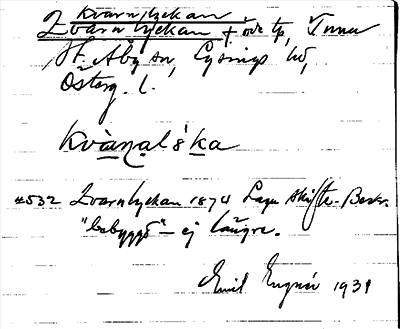 Kvarnlyckan
Qvarnlyckan + ödetp, Tuna
St. Åby sn, Lysings hd,
Österg. l.
Kvànal`s ka
Qvarnlyckan 1874 Laga skifte-Beskr.
"bebyggd" – ej längre.
Emil 1931